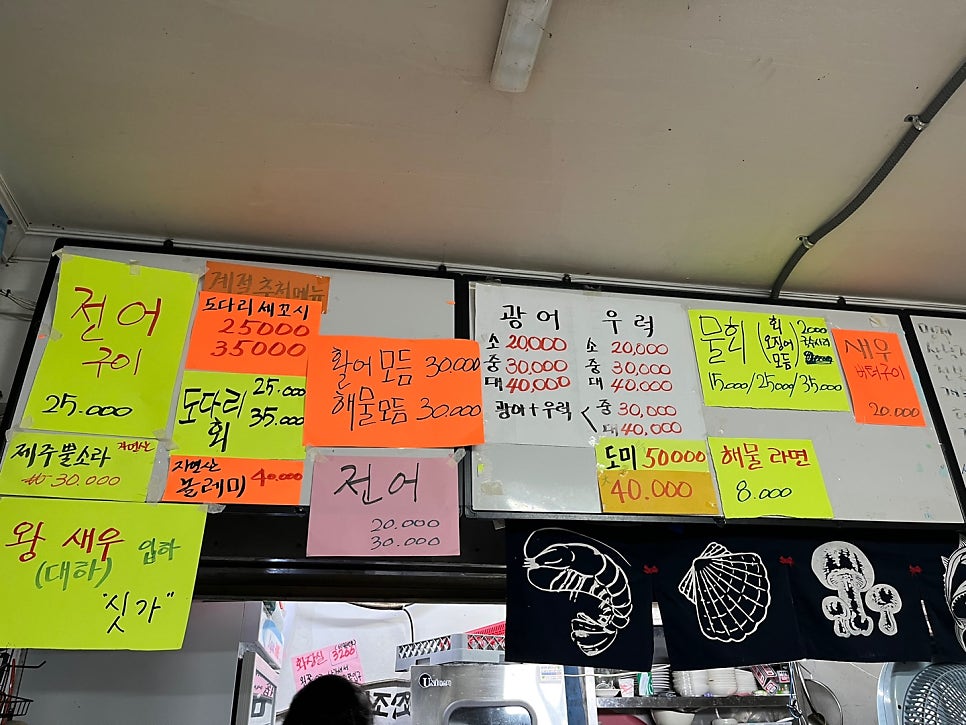 전어
구이
25.000
제주뿔소라 자연산
₩30.000
왕 새우 입하
(대하)
"싯가"
계절추천메뉴
도다리세꼬시
25000
35000
도다리 25.000
회 35.000
자연산
볼레미 40.000
활어모듬 30000
해물모듬 30.000
전어
20.000
30.000
광어
소 20,000
중 30,000
대 40,000
우럭
소 20,000
중 30,000
대 40,000
광어+우럭 < 중 30,000
대 40,000
도미 50000
40.000
물회 (회
오징어
모듬
2000
국수사리
15,000/25,000/35,000
해물라면
8.000
새우
버터구이
20.000
화장실 3200
Unicorn
조